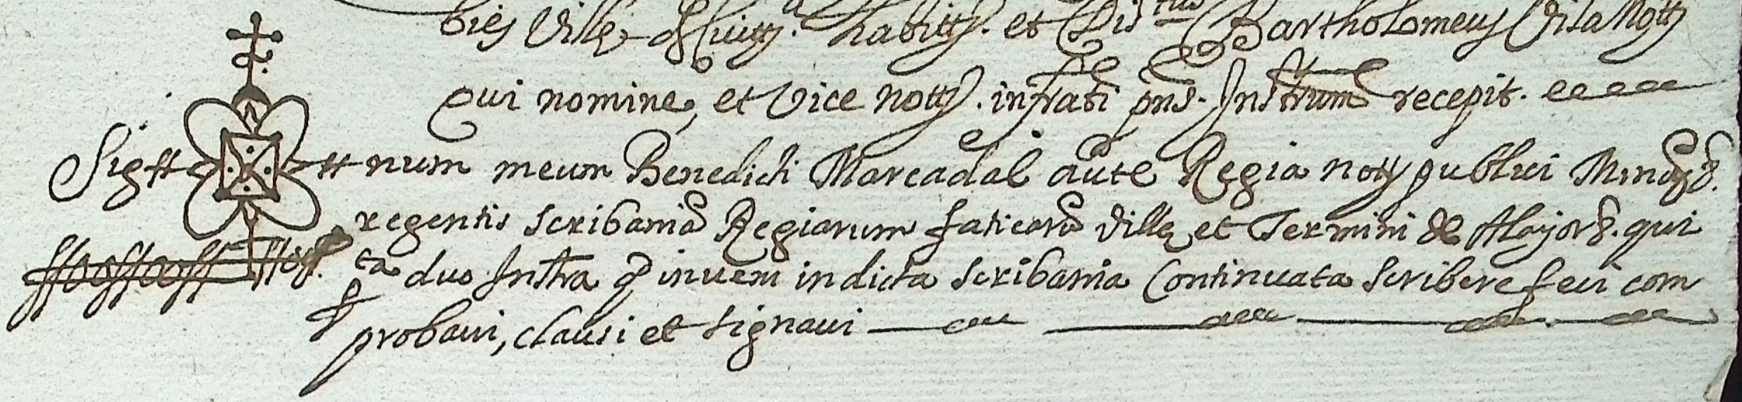 bies Ville et Civitt. habitts. et Distus Bartholomeus Vila Notts
qui nomine, et vice notts. infrati pns. Instrum recepit.
Sig++num meum Benedicti Marcadal aucte Regia notts publici Minors.
regentis scribania Regiarum faticaru Ville et Termini de Alajors. qui
ta duo Instra q inuem in dicta scribania Continuata scribere feci com
probaui, clausi et signaui